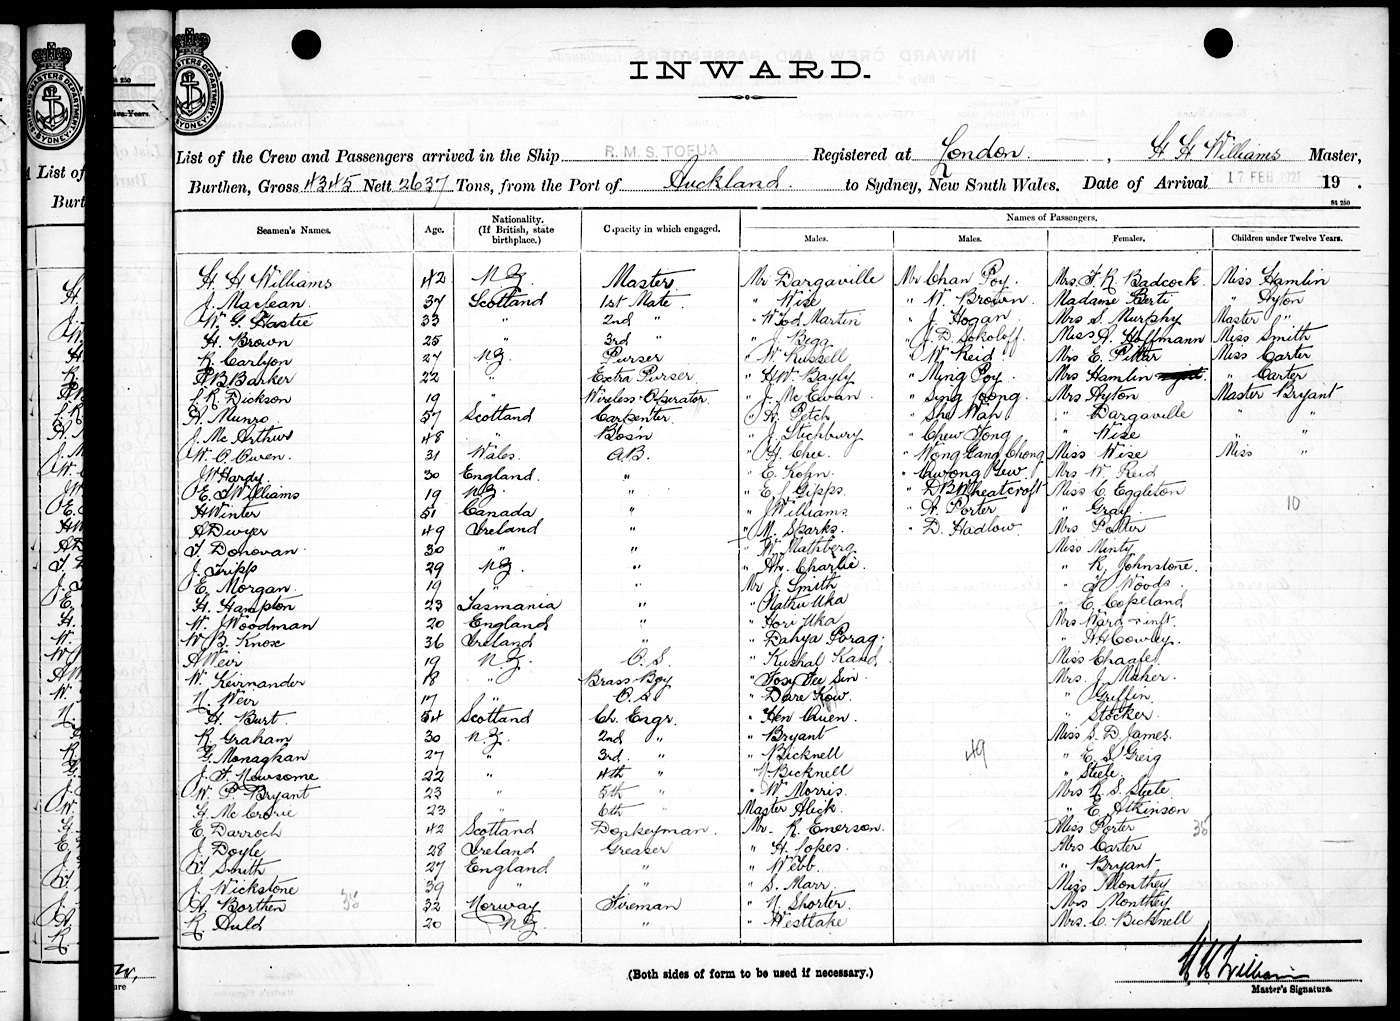 INWARD.
List of the Crew and Passengers arrived in the Ship R. M. S. TOFUA Registered at London. , H H Williams Master,
Burthen, Gross 4345 Nett 2637 Tons, from the Port of Auckland. to Sydney, New South Wales. Date of Arrival 17 FEB 1921 19 .
St 250
Seamen's Names. Age. Nationality. (If British, state birthplace.) Capacity in which engaged. Names of Passengers.
Males. Males. Females. Children under Twelve Years.
H H Williams 42 N Z. Master. Mr Dargaville Mr Chan Poy. Mrs. F. R. Badcock. Miss Hamlin
J. Maclean. 37 Scotland 1st Mate. " Wise " W. Brown. Madame Berti " Dyson
W. G. Hastie 33 " 2nd " " Wod Martin " J. Hogan. Mrs S. Murphy Master "
H. Brown 25 " 3rd " " J. Bigg. " J. D. Sokoloff. Miss A. Hoffmann Miss Smith
R. Carlyon 27 N Z. Purser " W Russell " W. Reid Mrs E. Pillar Miss Carter
A B Barker 22 " Extra Purser. " H W. Bayly " Ming Poy. Mrs Hamlin " Carter
L R. Dickson 19 " Wireless Operator. " J. Mc Ewan. " Sing Joong. Mrs Ayton Master Bryant
A. Munro 57 Scotland Carpenter. " A. Petch " She Wah " Dargaville " "
J. Mc Arthur 48 " Bosn " J. Stichbury " Chew Tong " Wise " "
W. O. Owen. 31 Wales. A.B. " G. Chee. " Wong Gang Chong Miss Wise Miss "
W Hardy. 30 England. " " E. Kohn. " Awong Yew. Mrs W Reid
E. J Williams 19 N Z. " " E J Gipps. " D B Wheatcroft Miss C. Eggleton
H Winter 51 Canada " " J Williams. " A. Porter " Gray. 10
A Dwyer 49 Ireland " " M. Sparks. " D. Hadlow. Mrs Potter
T. Donovan. 30 " " " W. Mathberg. Miss Minty
J. Tripp 29 N Z. " " Ah. Charlie. " R. Johnstone.
E. Morgan. 19 " " Mr J. Smith " F. Woods.
H. Hampton 23 Tasmania " " Nathu Uka " E. Copeland
W. Woodman 20 England " " Hori Uka Mrs Ward & inft.
W B. Knox 36 Ireland " " Dahya Porag. " A H Cowley.
A Weir 19 N. Z. O. S. " Kushal Kand. Miss Chaafe
W. Keirnander 18 " Brass Boy " Foxy Fee Sin. Mrs. J. Maher.
N. Weir 17 " O. S. " Dare Kow. " Griffin
H. Burt. 54 Scotland Ch. Engr. " Hen Quen. " Stocker.
R. Graham 30 N. Z. 2nd " " Bryant Miss S. D. James.
G. Monaghan 27 " 3rd. " " Bicknell 49 " E. S. Greig
J. F. Newsome 22 " 4th " " Bicknell " Steele
W. P. Bryant 23 " 5th " " W Morris. Mrs R. S. Steele
G. Mc Crorie 23 " 6th " Master Alick. " E. Atkinson
E. Darroch 42 Scotland Donkeyman. Mr. R. Emerson. Miss Porter 35
J. Doyle 28 Ireland Greaser " H. Lopes. Mrs Carter
T. Smith 27 England " " Webb. " Bryant
J. Wickstone 39 " " " S. Marr. Miss Monthey
A. Borthen 35 32 Norway Fireman " N. Shorter. Mrs Monthey
R. Auld 20 N Z. " " Westlake Mrs. C. Bicknell
(Both sides of form to be used if necessary.)
H H Williams
Master's Signature.